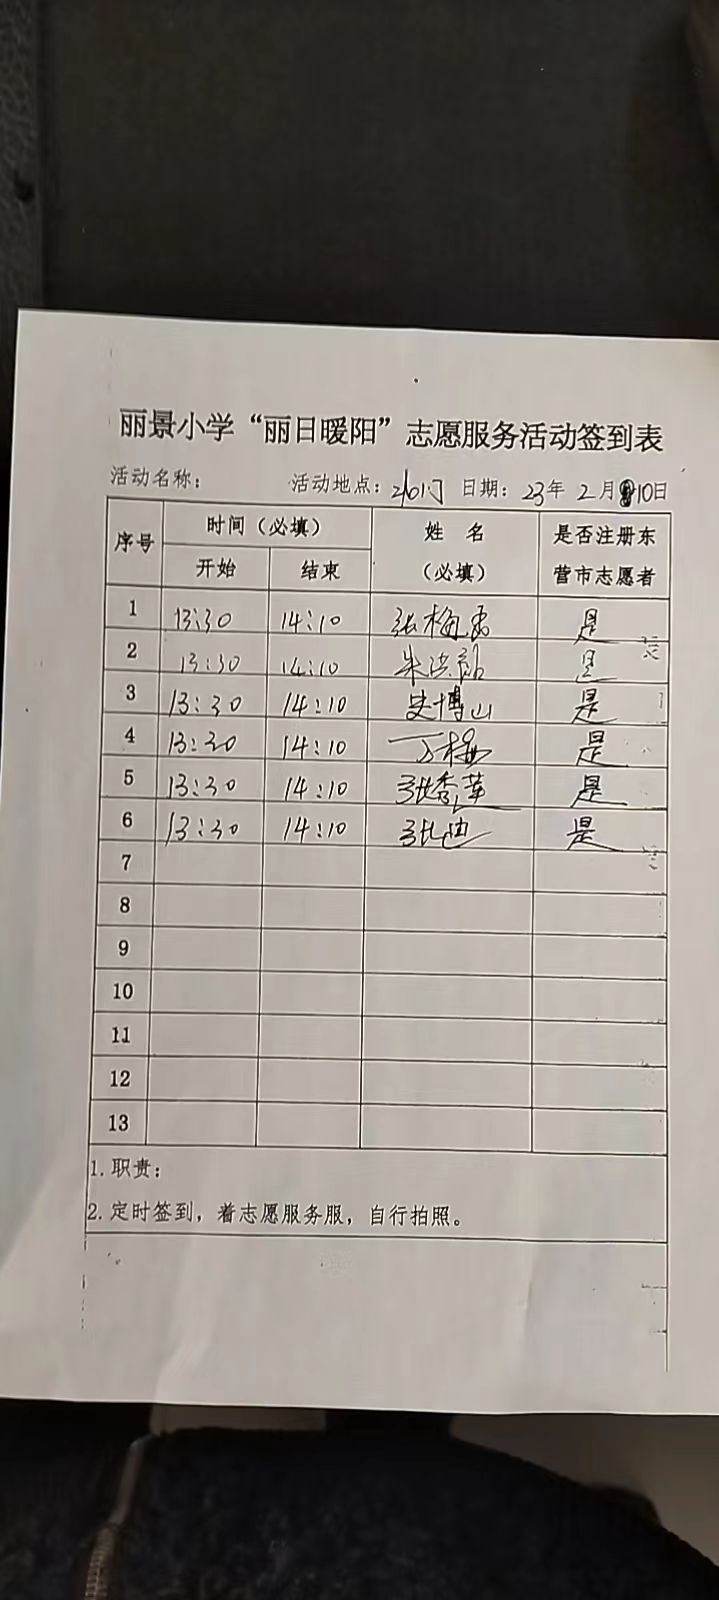 丽景小学“丽日暖阳”志愿服务活动签到表
活动名称： 活动地点： 日期：23年 2月10日
序号 时间（必填） 姓 名（必填） 是否注册东营市志愿者
开始 结束
1 13:30 14:10 张梅 是
2 13:30 14:10 朱 是
3 13:30 14:10 史博山 是
4 13:30 14:10 丁梅 是
5 13:30 14:10 张秀华 是
6 13:30 14:10 张迪 是
7
8
9
10
11
12
13
1.职责：
2.定时签到，着志愿服务服，自行拍照。